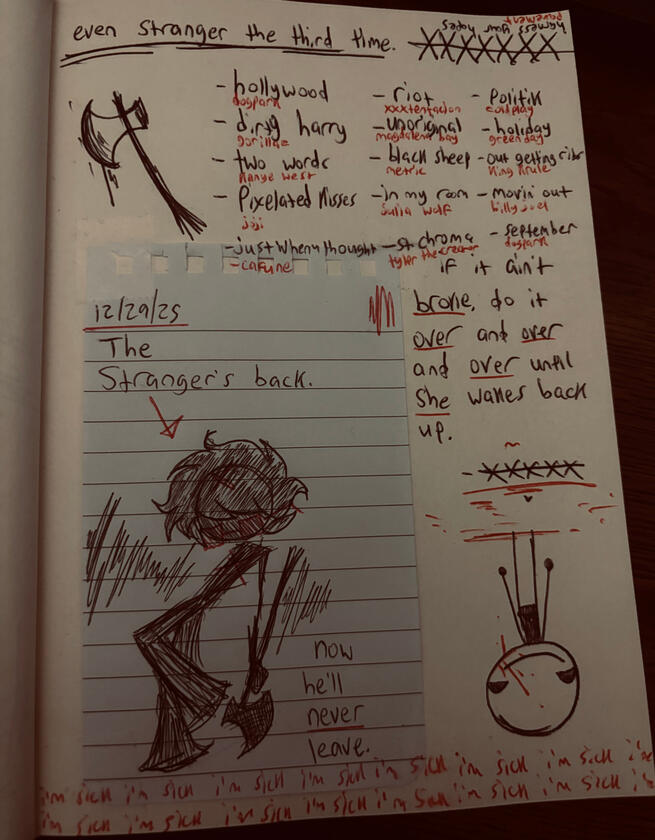 even Stranger the third time.
harness your hopes
pavement
- hollywood
dogpark
- dirty harry
gorillaz
- two words
Kanye West
- Pixelated Kisses
joji
- just when thought
- cafune
- riot
xxxtentacion
- unoriginal
magdalena bay
- black sheep
metric
- in my room
Julia wolf
- st chroma
tyler the creator
- Politik
coldplay
- holiday
green day
- out getting ribs
King Krule
- movin' out
billy joel
- september
dogpark
if it ain't
broke, do it
over and over
and over until
She wakes back
up.
12/29/25
The
Stranger's back.
now
he'll
never
leave.
i'm sick i'm sick i'm sick i'm sick i'm sick i'm sick i'm sick i'm
i'm sick i'm sick i'm sick i'm sick i'm sick i'm sick i'm sick